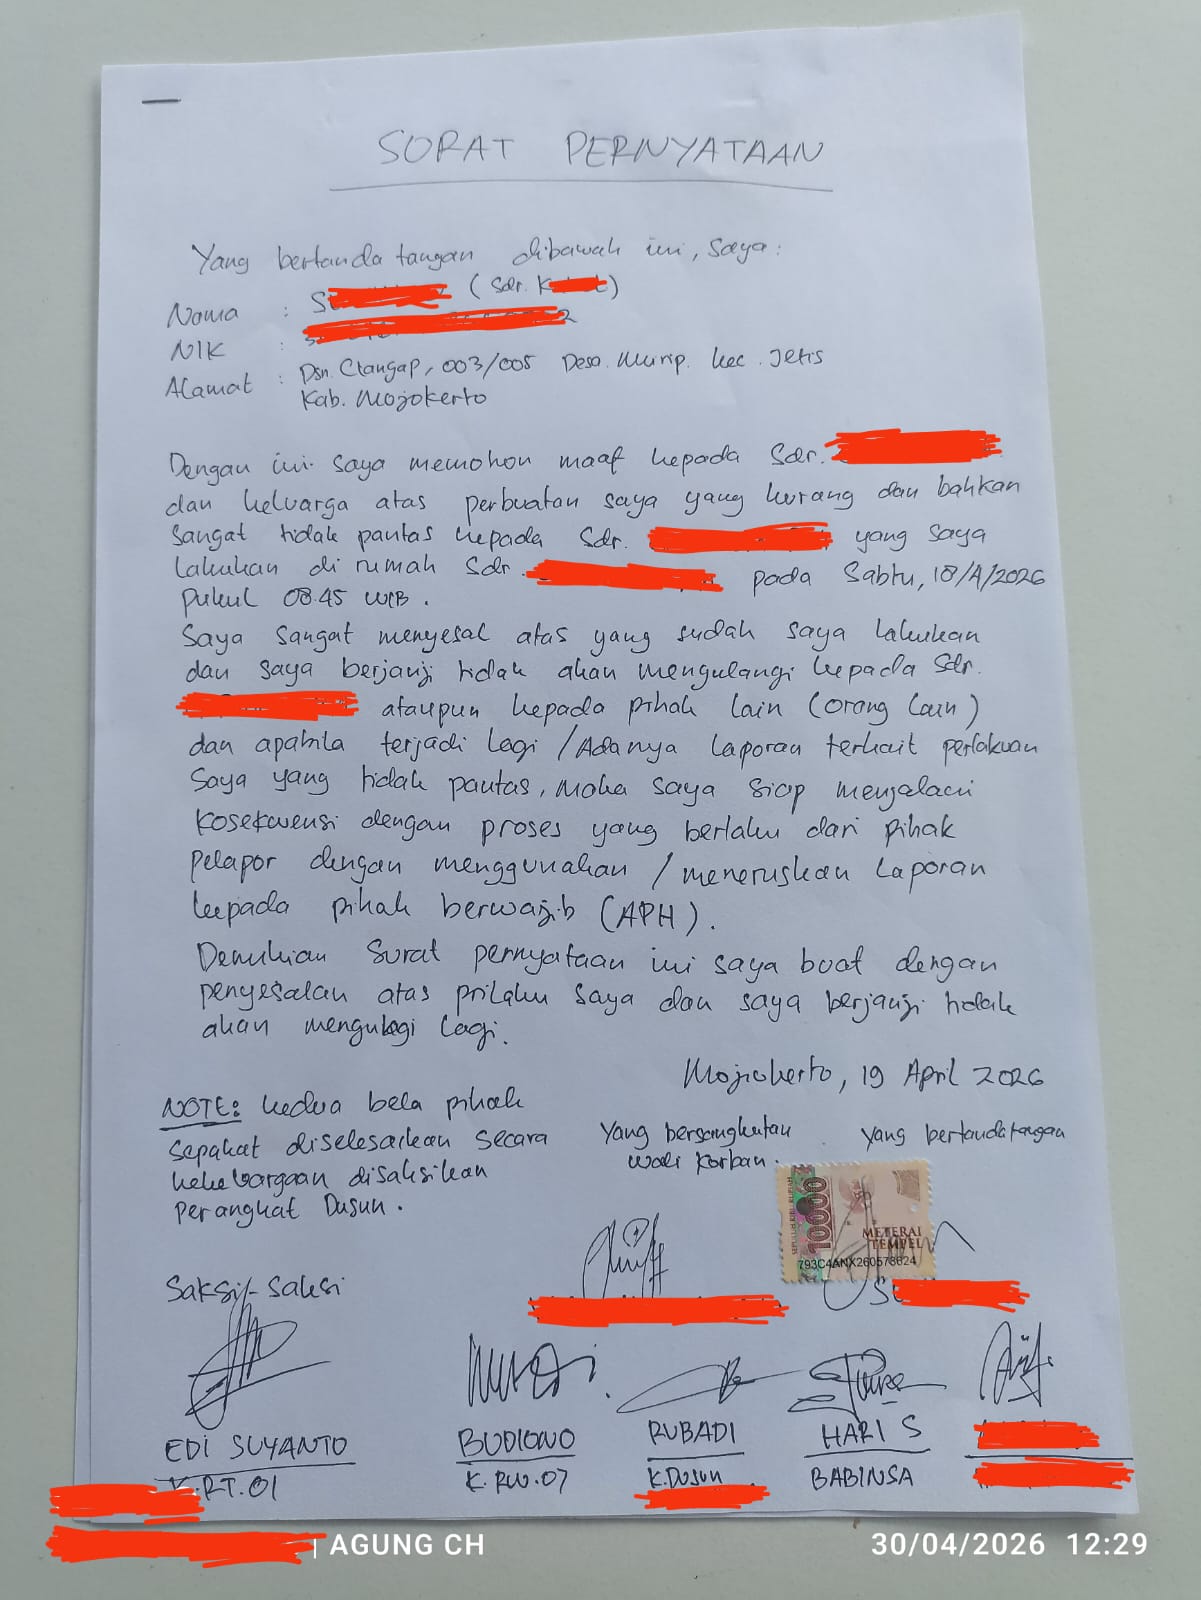 SURAT PERNYATAAN
Yang bertanda tangan dibawah ini, saya :
Nama : S (Sdr. K)
NIK : 2
Alamat : Dsn. Ctangap, 003/005 Desa. Murip. kec. Jetis
Kab. Mojokerto
Dengan ini saya memohon maaf kepada Sdr.
dan keluarga atas perbuatan saya yang kurang dan bahkan
sangat tidak pantas kepada Sdr. yang saya
lakukan di rumah Sdr. pada Sabtu, 18/4/2026
pukul 08.45 WIB.
Saya sangat menyesal atas yang sudah saya lakukan
dan saya berjanji tidak akan mengulangi kepada Sdr.
ataupun kepada pihak lain (orang lain)
dan apabila terjadi lagi / Adanya laporan terkait perlakuan
saya yang tidak pantas, maka saya siap menjalani
kosekwensi dengan proses yang berlaku dari pihak
pelapor dengan menggunakan / meneruskan laporan
kepada pihak berwajib (APH).
Demikian surat pernyataan ini saya buat dengan
penyesalan atas prilaku saya dan saya berjanji tidak
akan mengulagi lagi.
Mojokerto, 19 April 2026
NOTE: kedua bela pihak
sepakat diselesaikan secara
kekeluargaan disaksikan
perangkat Dusun.
Yang bersangkutan
wali korban.
yang bertandatangan
SEPULUH RIBU RUPIAH
10000
METERAI
TEMPEL
793C4ANX260578624
S
Saksi-saksi
EDI SUYANTO
K.RT.01
BUDIONO
K.RW.07
RUBADI
K.Dusun
HARI S
BABINSA
| AGUNG CH
30/04/2026 12:29